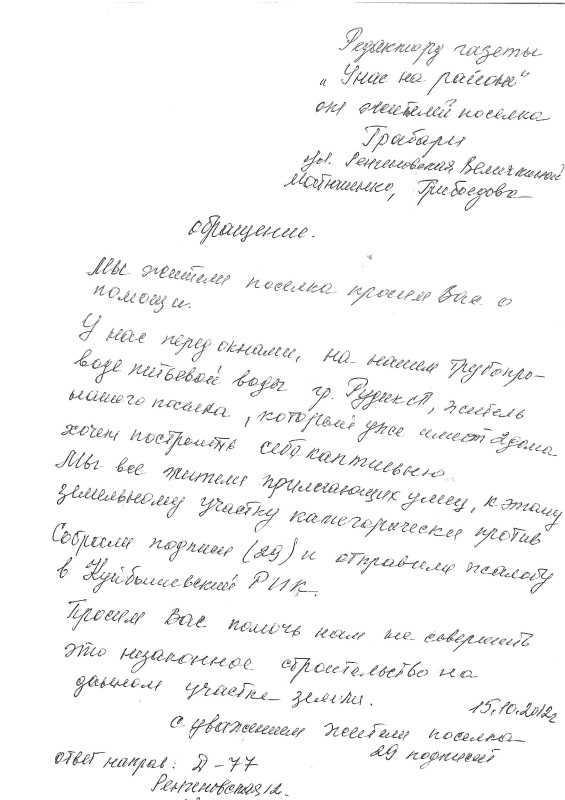 Редактору газеты
„У нас на районе"
от жителей поселка
Грабари
ул. Ренгеновская, Величкиной
Матюшенко, Грибоедова
обращение.
Мы жители поселка просим Вас о
помощи.
У нас перед окнами, на нашем трубопро-
воде питьевой воды гр. Рудик А, житель
нашего поселка, который уже имеет 2 дома
хочет построить себе
Мы все жители прилегающих улиц, к этому
земельному участку категорически против
Собрали подписи (29) и отправили жалобу
в Куйбышевский РИК.
Просим Вас помочь нам не совершить
это незаконное строительство на
данном участке земли.
15.10.2012г
с уважением жители поселка
29 подписей
ответ направ: Д-77
Ренгеновская 12.